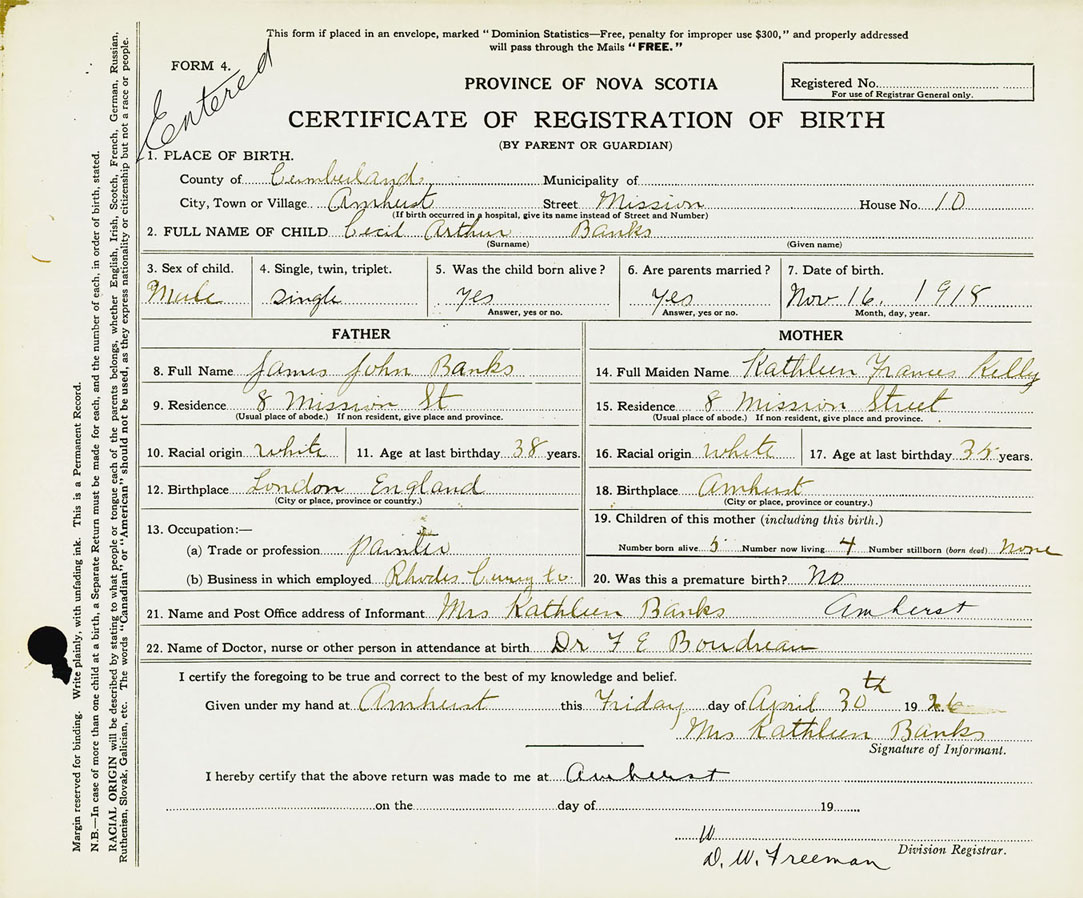 This form if placed in an envelope, marked "Dominion Statistics—Free, penalty for improper use $300," and properly addressed
will pass through the Mails "FREE."
FORM 4.
Entered
PROVINCE OF NOVA SCOTIA
Registered No.
For use of Registrar General only.
CERTIFICATE OF REGISTRATION OF BIRTH
(BY PARENT OR GUARDIAN)
1. PLACE OF BIRTH.
County of Cumberland Municipality of
City, Town or Village Amherst Street Mission House No. 10
(If birth occurred in a hospital, give its name instead of Street and Number)
2. FULL NAME OF CHILD Cecil Arthur Banks
(Surname) (Given name)
3. Sex of child. 4. Single, twin, triplet. 5. Was the child born alive? 6. Are parents married? 7. Date of birth.
Male single yes yes Nov 16. 1918
Answer, yes or no. Answer, yes or no. Month, day, year.
FATHER MOTHER
8. Full Name James John Banks 14. Full Maiden Name Kathleen Frances Kelly
9. Residence 8 Mission St 15. Residence 8 Mission Street
(Usual place of abode.) If non resident, give place and province. (Usual place of abode.) If non resident, give place and province.
10. Racial origin white 11. Age at last birthday 38 years. 16. Racial origin white 17. Age at last birthday 35 years.
12. Birthplace London England 18. Birthplace Amherst
(City or place, province or country.) (City or place, province or country.)
13. Occupation:— 19. Children of this mother (including this birth.)
(a) Trade or profession painter Number born alive 5 Number now living 4 Number stillborn (born dead) None
(b) Business in which employed Rhodes Curry Co. 20. Was this a premature birth? No
21. Name and Post Office address of Informant Mrs Kathleen Banks Amherst
22. Name of Doctor, nurse or other person in attendance at birth Dr F E Boudreau
I certify the foregoing to be true and correct to the best of my knowledge and belief.
Given under my hand at Amherst this Friday day of April 30th 1926
Mrs Kathleen Banks
Signature of Informant.
I hereby certify that the above return was made to me at Amherst
on the day of 19
W
D. W. Freeman Division Registrar.
Margin reserved for binding. Write plainly, with unfading ink. This is a Permanent Record.
N.B.—In case of more than one child at a birth, a Separate Return must be made for each, and the number of each, in order of birth, stated.
RACIAL ORIGIN will be described by stating to what people or tongue each of the parents belongs, whether English, Irish, Scotch, French, German, Russian,
Ruthenian, Slovak, Galician, etc. The words "Canadian" or "American" should not be used, as they express nationality or citizenship but not a race or people.